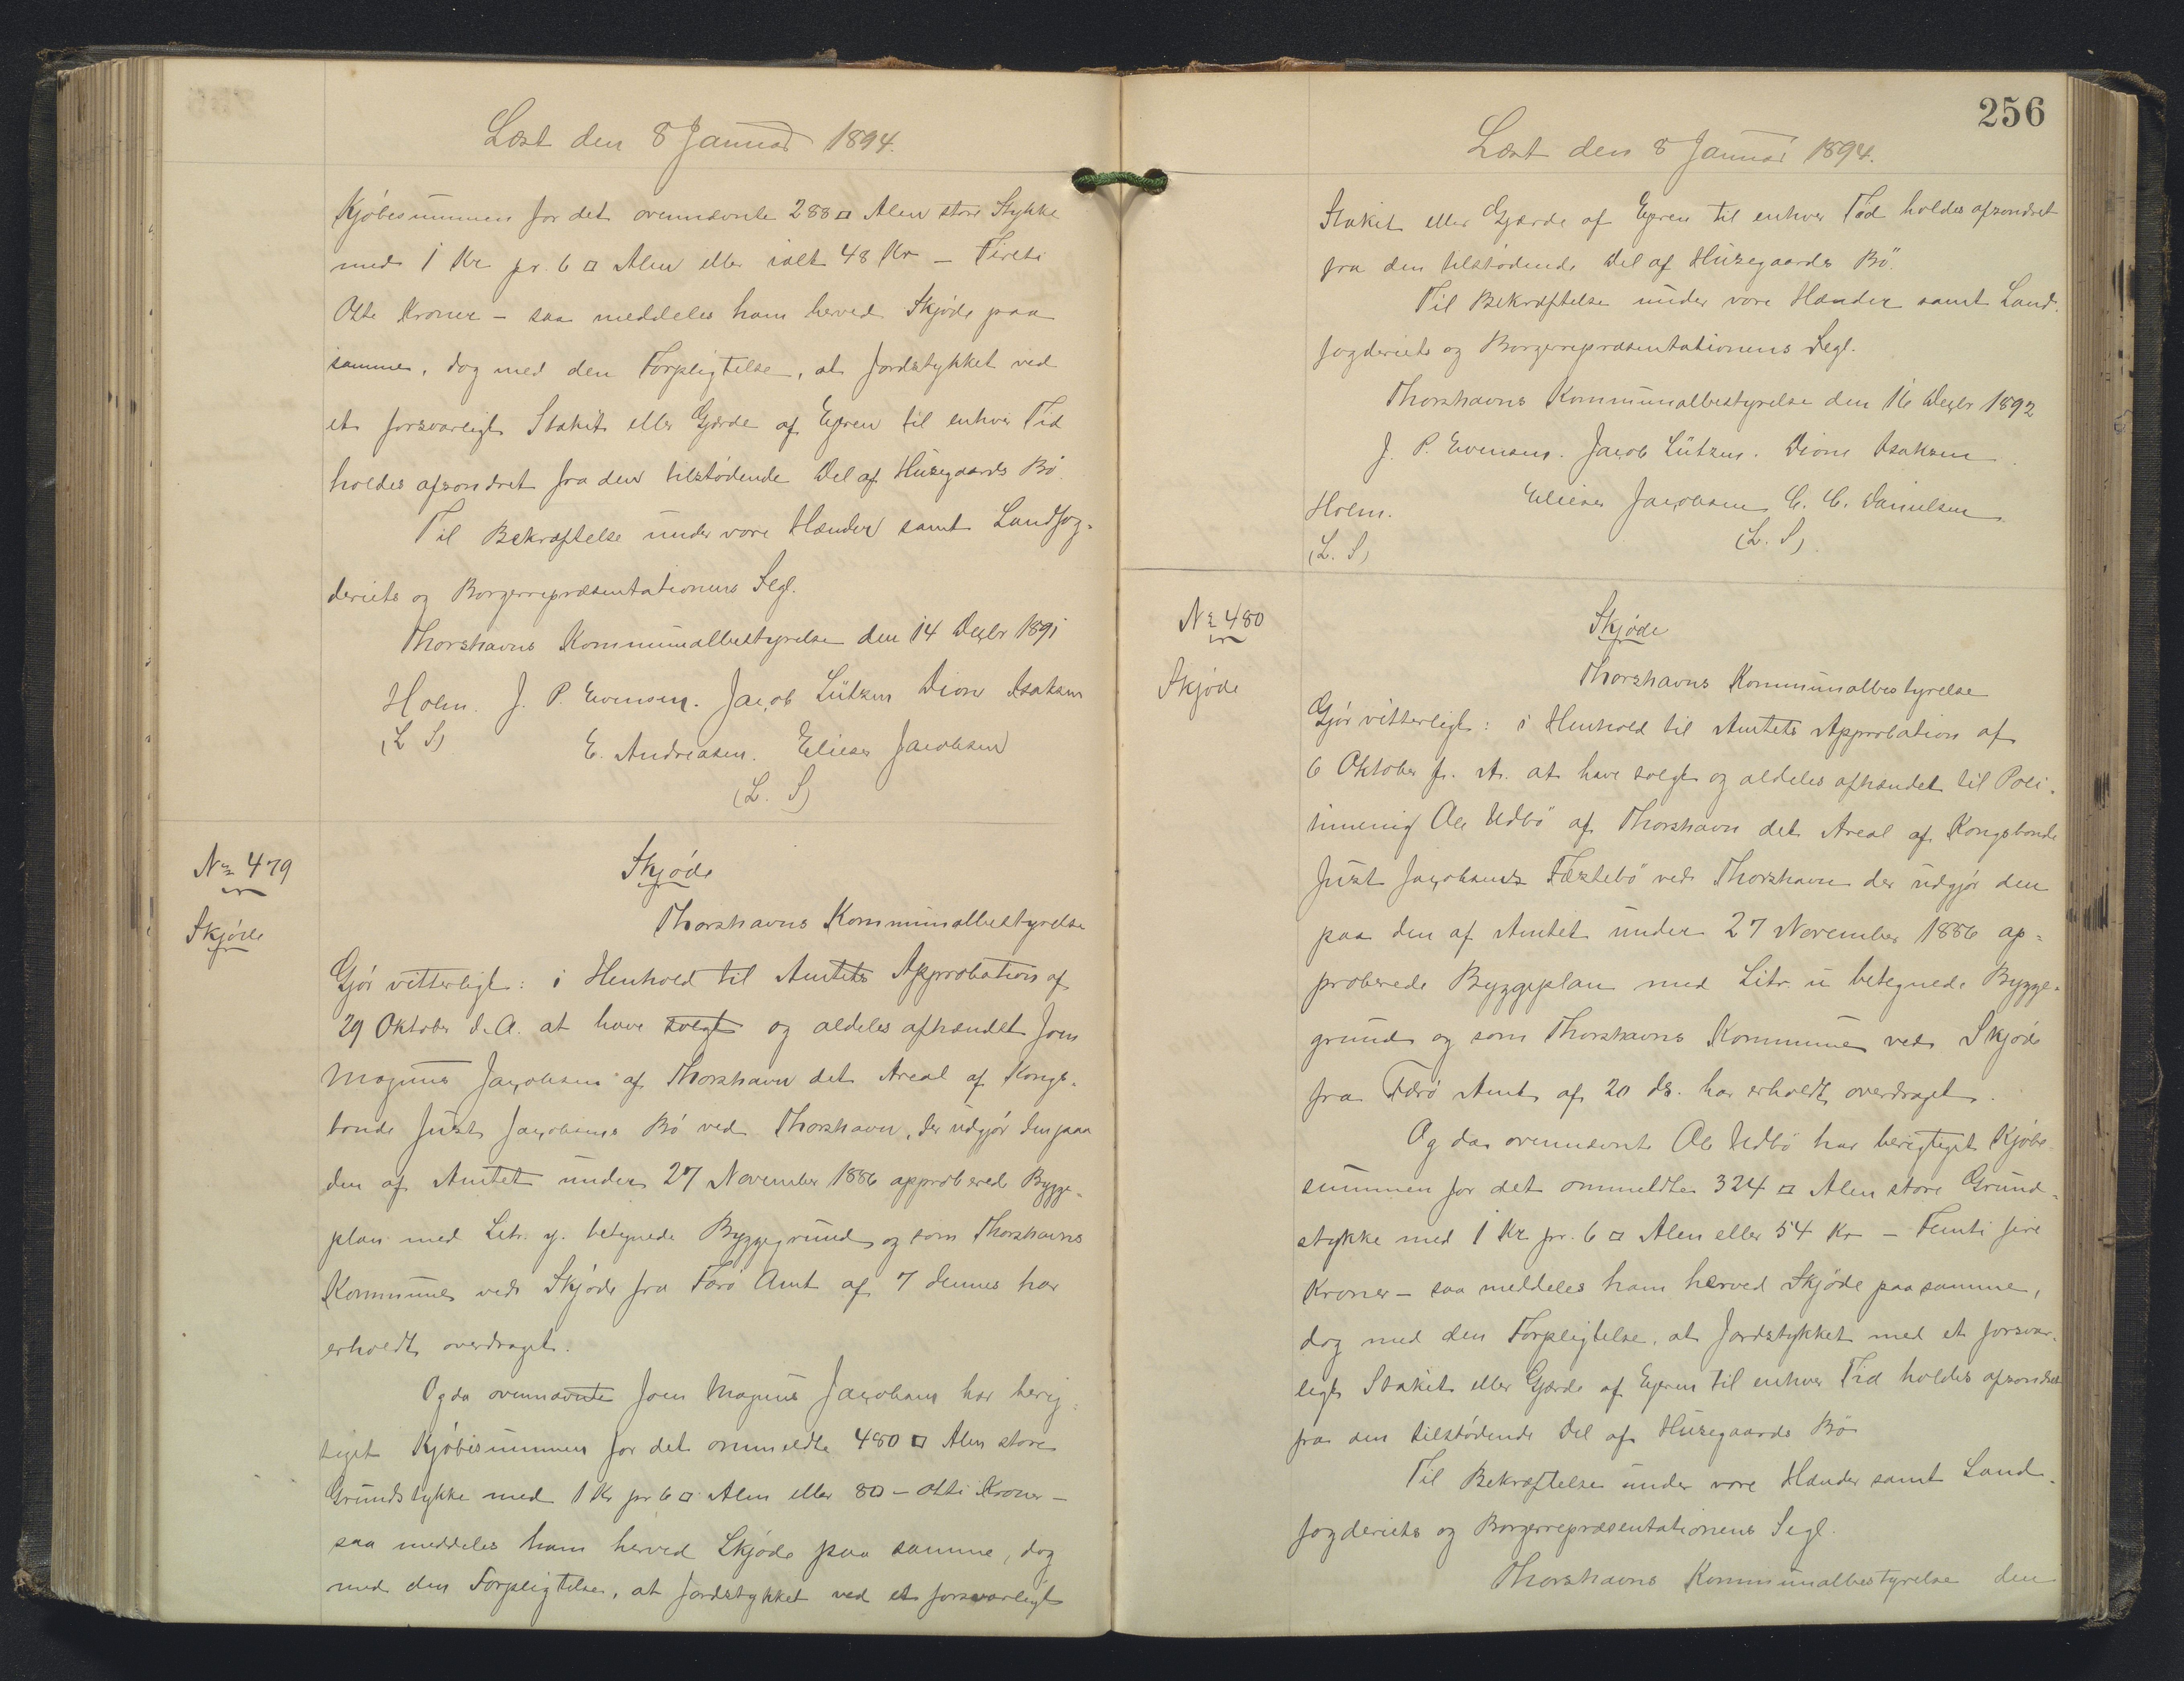 Læst den 8 Januar 1894.
Kjøbesummen for det ovennævnte 288 □ Alen store Stykke
med 1 Kr pr. 6 □ Alen eller ialt 48 Kr – Fireti
Otte Kroner – saa meddeles ham herved Skjøde paa
samme, dog med den Forpligtelse, at Jordstykket ved
et forsvarligt Stakit eller Gjærde af Ejeren til enhver Tid
holdes afsondret fra den tilstødende Del af Husegaards Bø
Til Bekræftelse under vore Hænder samt Landfog=
deriets og Borgerrepræsentationens Segl.
Thorshavns Kommunalbestyrelse den 14 Decbr 1891
Holm. J. P. Evensen. Jacob Lützen Dion Isaksen
(L S)
E. Andreasen. Elieser Jacobsen
(L. S)
№ 479
Skjøde
Skjøde
Thorshavns Kommunalbestyrelse
Gjør vitterligt: i Henhold til Amtets Approbation af
29 Oktober d. A. at have solgt og aldeles afhændet Joen
Magnus Jacobsen af Thorshavn det Areal af Kongs=
bonde Just Jacobsens Bø ved Thorshavn, der udgjør den paa
den af Amtet under 27 November 1886 approberede Bygge=
plan med Litr. y. betegnede Byggegrund og som Thorshavns
Kommune ved Skjøde fra Færø Amt af 7 dennes har
erholdt overdraget.
Og da ovennævnte Joen Magnus Jacobsen har berig=
tiget Kjøbesummen for det ommeldte 480 □ Alen store
Grundstykke med 1 Kr pr 6 □ Alen eller 80 – otti Kroner –
saa meddeles ham herved Skjøde paa samme, dog
med den Forpligtelse, at Jordstykket ved et forsvarligt
256
Læst den 8 Januar 1894.
Stakit eller Gjærde af Ejeren til enhver Tid holdes afsondret
fra den tilstødende Del af Husegaards Bø.
Til Bekræftelse under vore Hænder samt Land=
fogderiets og Borgerrepræsentationens Segl.
Thorshavns Kommunalbestyrelse den 16 Decbr 1892
J. P. Evensen. Jacob Lützen. Dion Isaksen
Holm. Elieser Jacobsen C. C. Danielsen
(L. S) (L. S)
№ 480
Skjøde
Skjøde
Thorshavns Kommunalbestyrelse
Gjør vitterligt: i Henhold til Amtets Approbation af
6 Oktober f. A. at have solgt og aldeles afhændet til
Ole Udbø af Thorshavn det Areal af Kongsbonde
Just Jacobsens Fæstebø ved Thorshavn der udgjør den
paa den af Amtet under 27 November 1886 ap=
proberede Byggeplan med Litr. u betegnede Bygge=
grund og som Thorshavns Kommune ved Skjøde
fra Færø Amt af 20 ds. har erholdt overdraget.
Og da ovennævnte Ole Udbø har berigtiget Kjøbe=
summen for det ommeldte 324 □ Alen store Grund=
stykke med 1 Kr pr. 6 □ Alen eller 54 Kr – Femti fire
Kroner – saa meddeles ham herved Skjøde paa samme,
dog med den Forpligtelse, at Jordstykket med et forsvar=
ligt Stakit eller Gjærde af Ejeren til enhver Tid holdes afsondret
fra den tilstødende Del af Husegaards Bø
Til Bekræftelse under vore Hænder samt Land=
fogderiets og Borgerrepræsentationens Segl.
Thorshavns Kommunalbestyrelse den